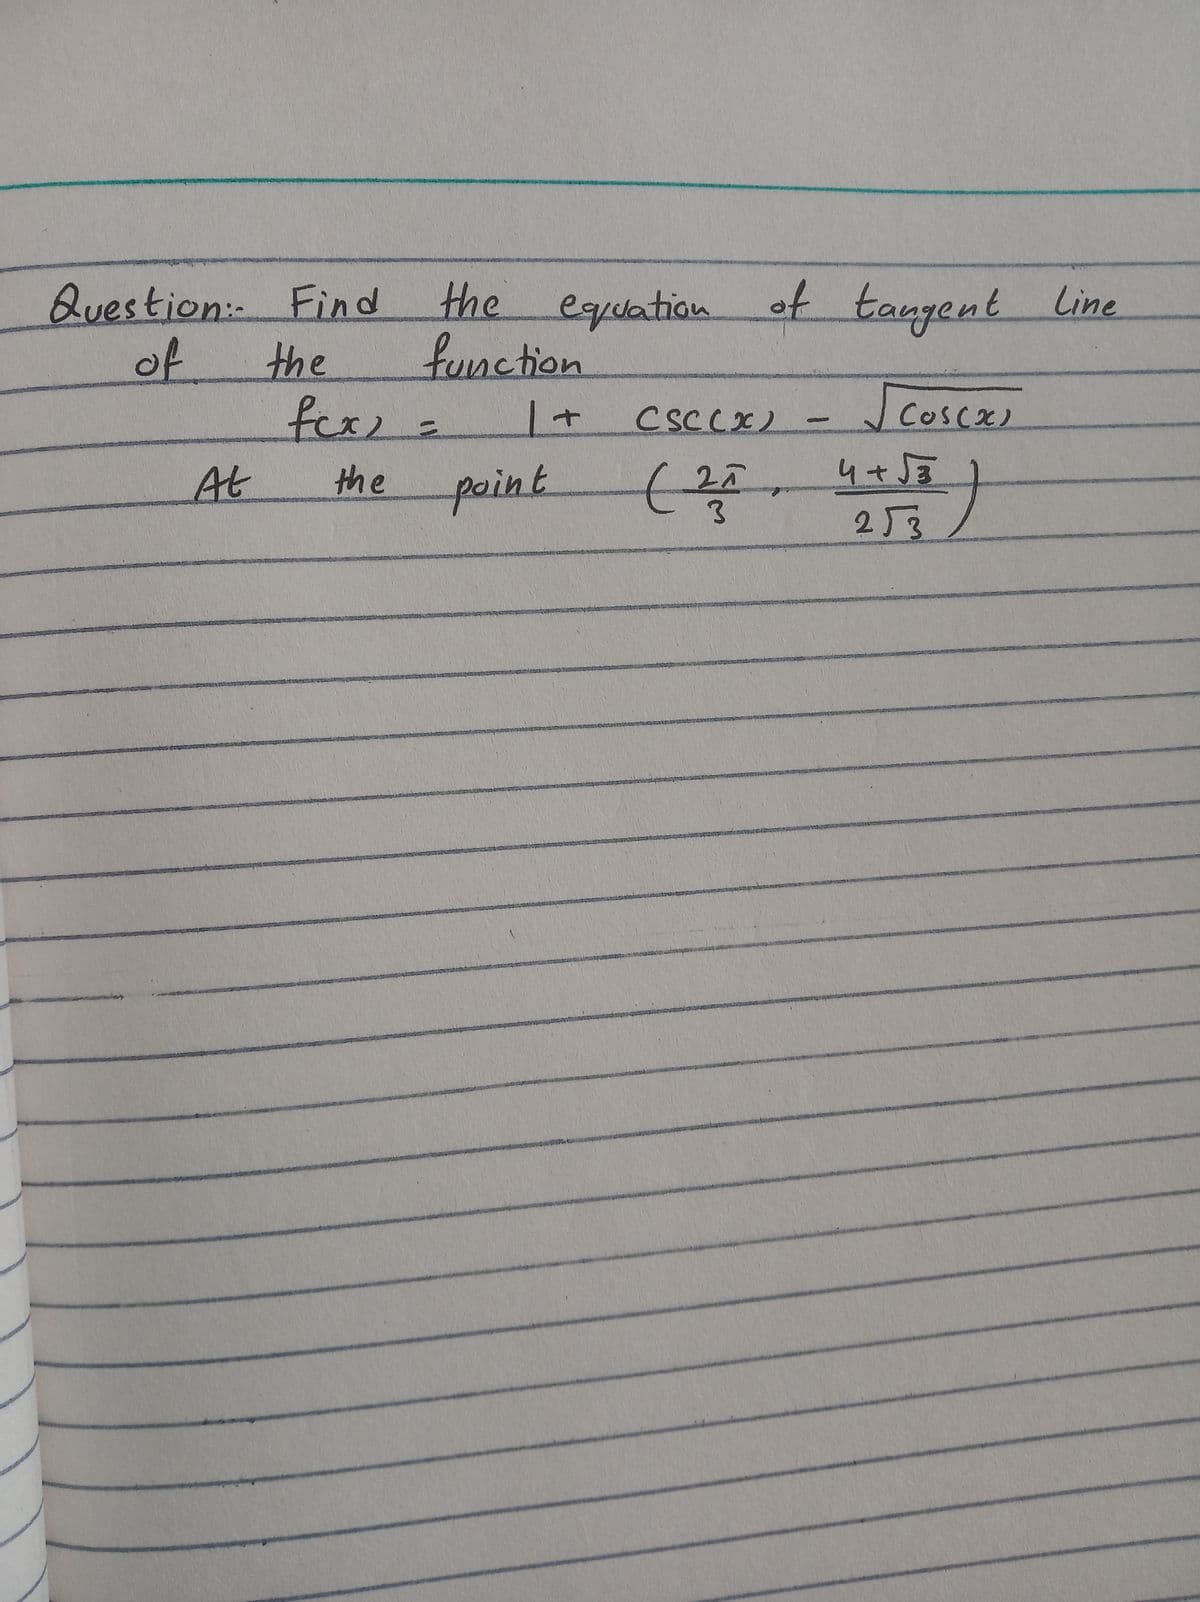 Question:- Find the equation of tangent line
of the function
f(x) = 1 + csc(x) - √cos(x)
At the point (2π/3, 4+√3/2√3)